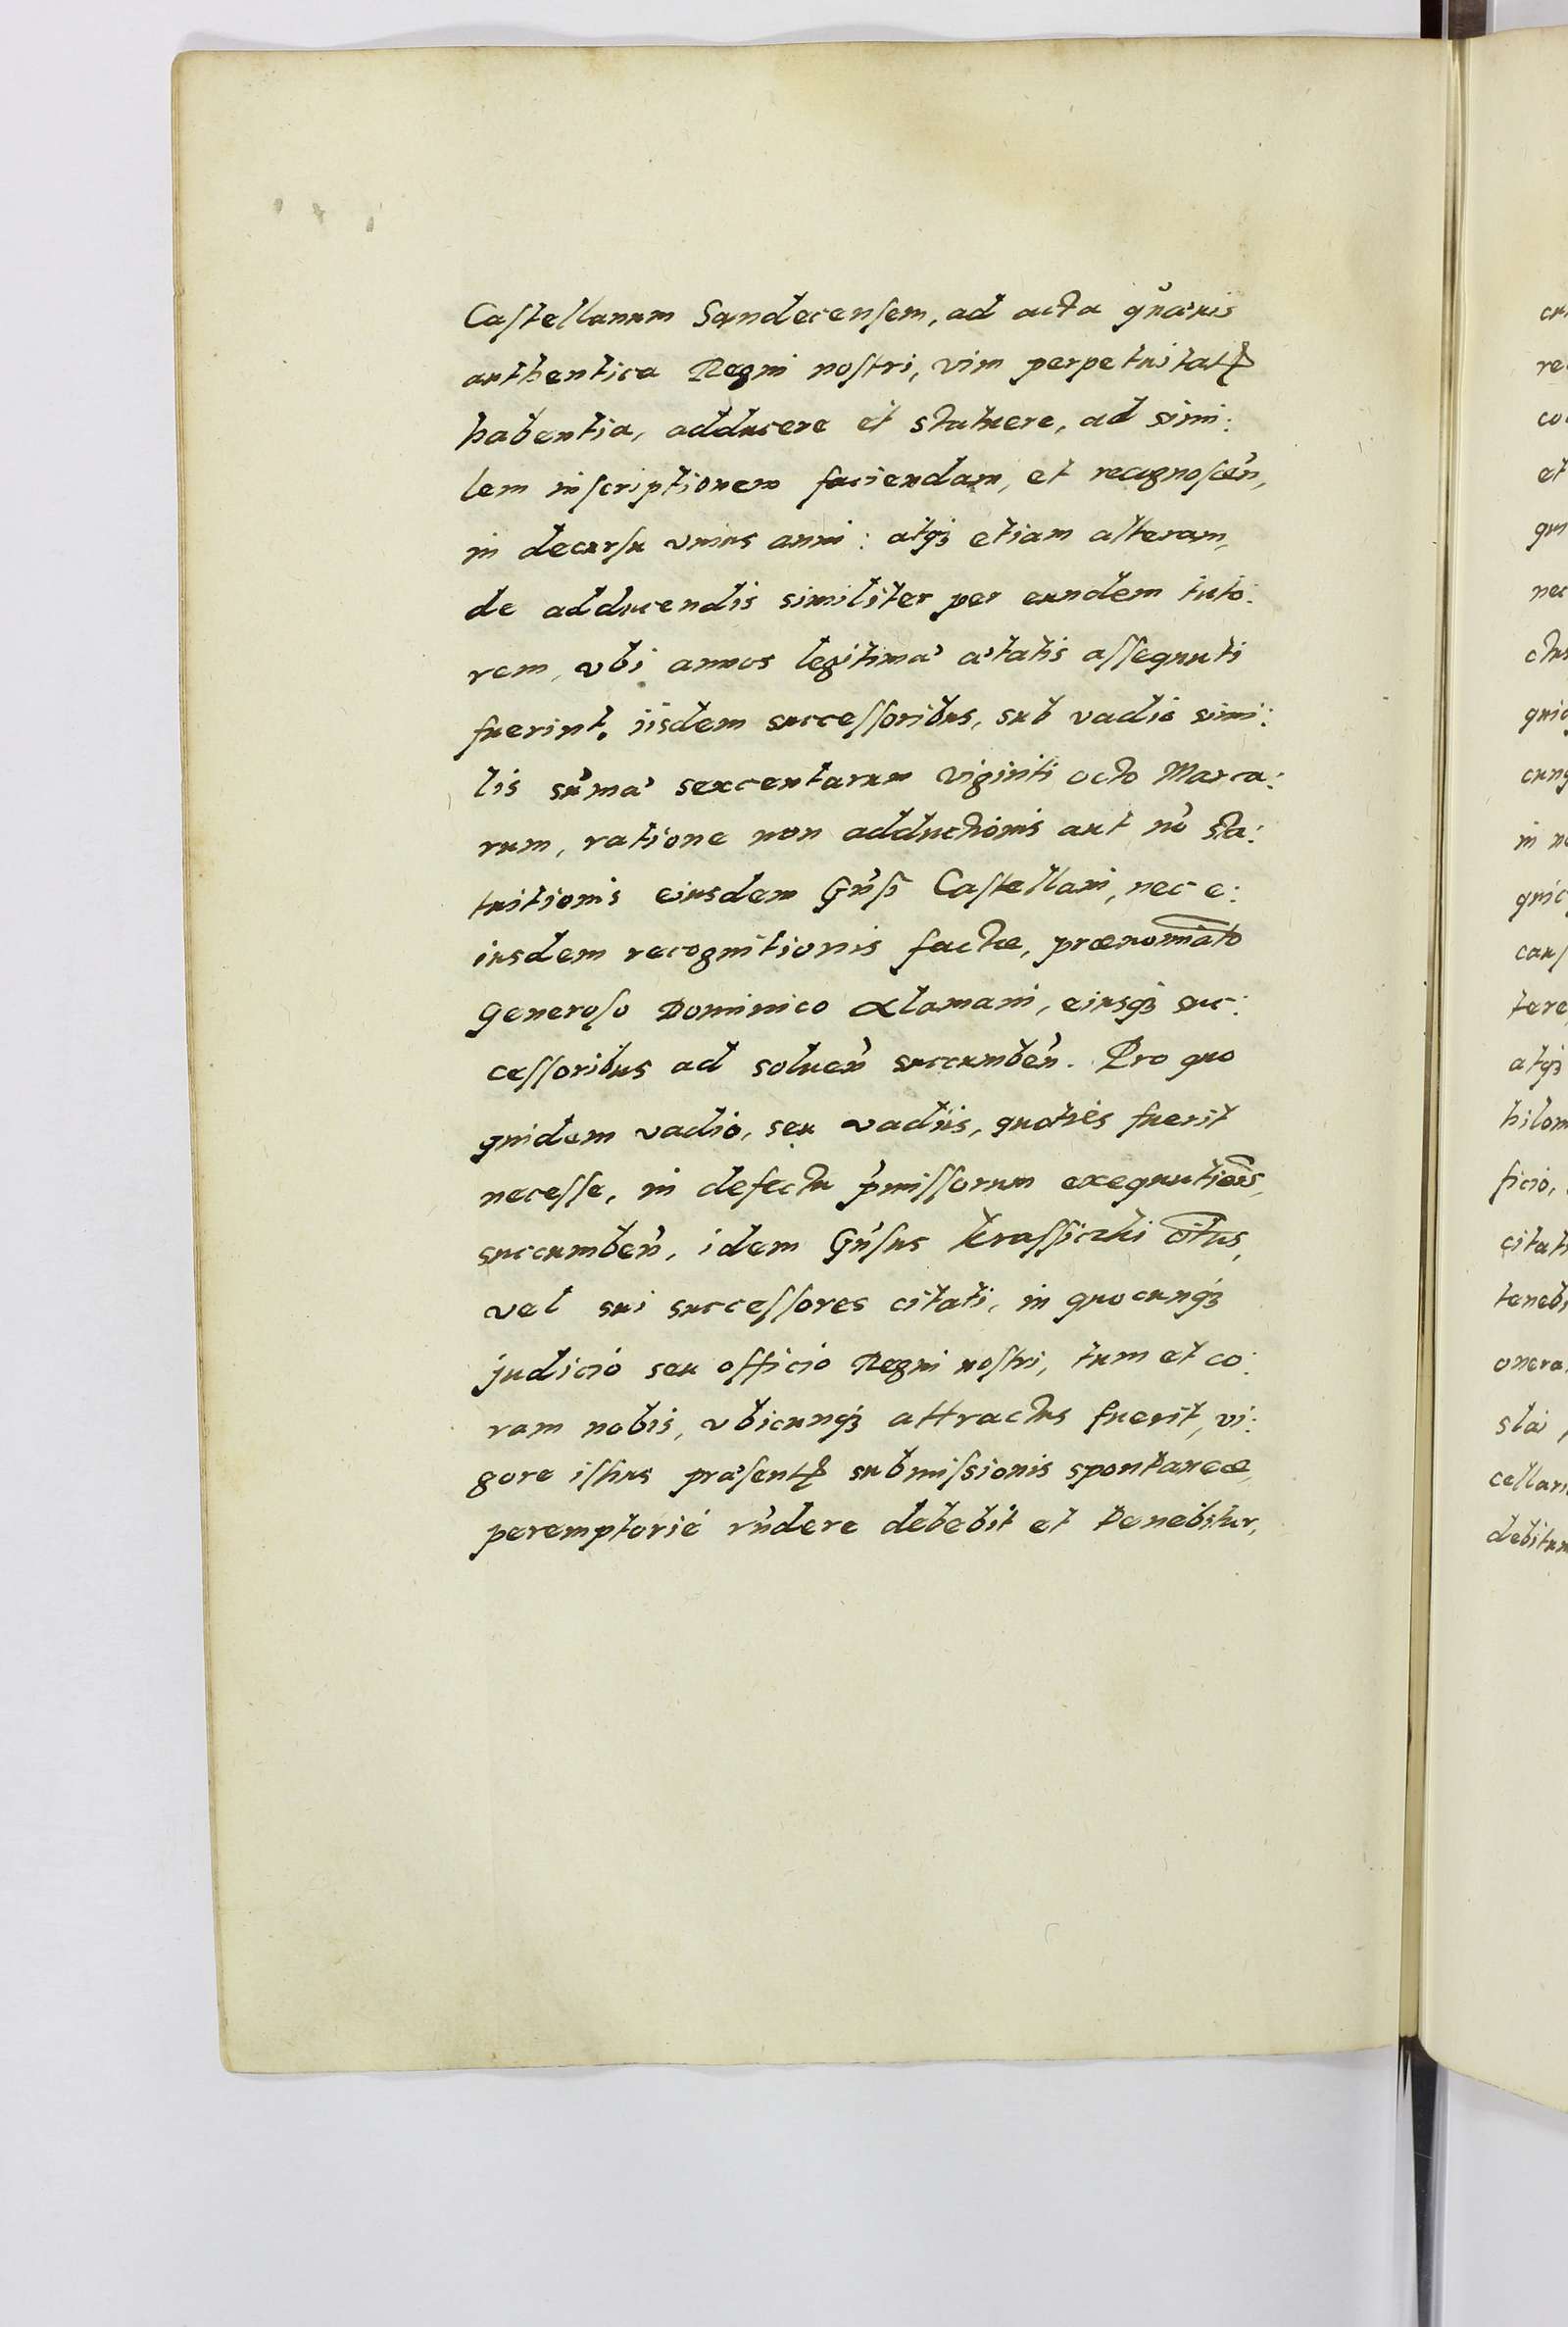 Caſtellanum Sandecenſem, ad acta quævis
authentica Regni noſtri, vim perpetuitatꝭ
habentia, adducere et statuere, ad simi:
lem inſcriptionem faciendam, et recognoſceñ,
in decurſu vnius anni: atqꝫ etiam alteram,
de adducendis similiter per eundem tuto:
rem, vbi annos legitimæ ætatis aſſequuti
fuerint, iisdem succeſſoribus, sub vadio simi:
lis sum̃æ sexcentarum viginti octo Marca:
rum, ratione non adductionis aut nõ sta:
tuitionis eiusdem Gñſi Caſtellani, nec e:
iusdem recognitionis factæ, prænomĩato
Generoſo Dominico Alamani, eiusqꝫ suc:
ceſſoribus ad solueñ succumbeñ. Pro quo
quidem vadio, seu vadiis, quoties fuerit
neceſſe, in defectu p̃miſſorum exequutiõis,
succumbeñ, idem Gñſus Kraſſiczki cĩtus,
vel sui succeſſores citati, in quocunqꝫ
judicio seu officio Regni noſtri, tum et co:
ram nobis, vbicunqꝫ attractus fuerit, vi:
gore iſtius præſentꝭ submiſsionis spontaneæ,
peremptorié rñdere debebit et tenebitur,